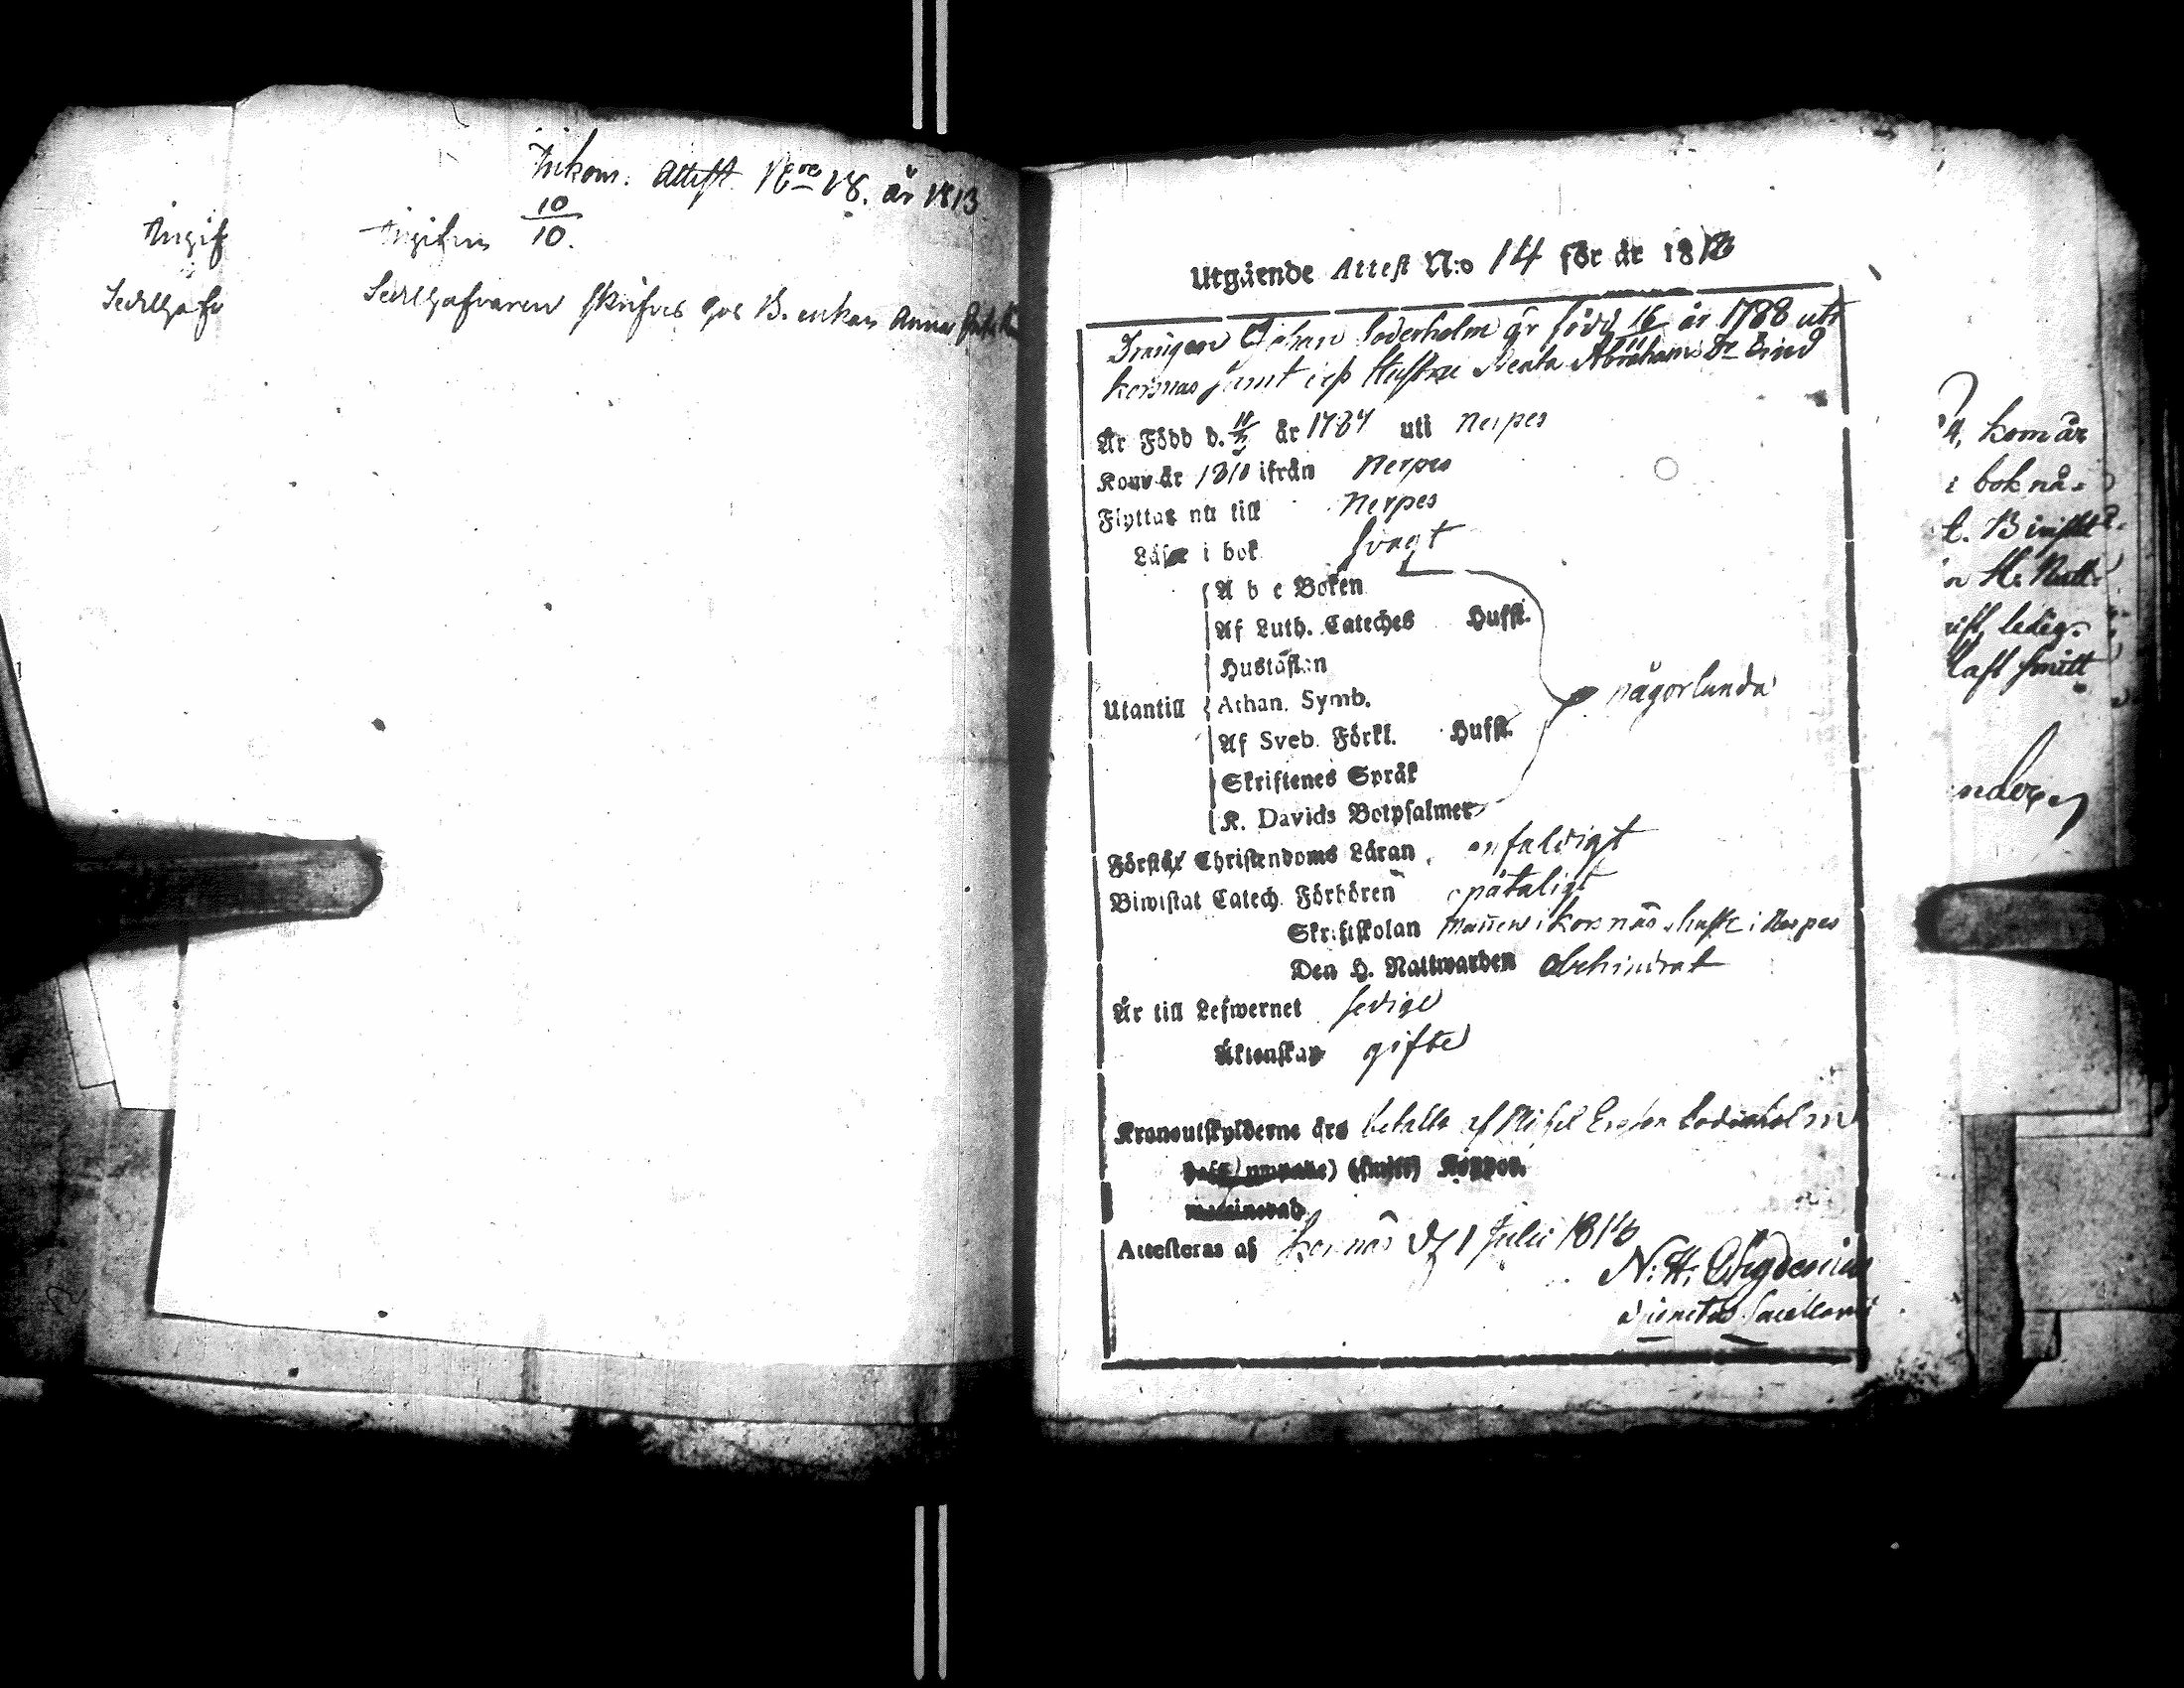 Inkom. Attest. N:ro 18. år 1813
Ingif
Ingifven 10/10.
Sedelhafv
Sedelhafvaren skrifves hos B. enkan Anna
Utgående Attest N:o 14 för år 181
Drängen Johan Söderholm är född 16/11 år 1788 uti
Korsnäs samt dess Hustru Beata Abrahams Dr
Är Född d. år 1787 uti Nerpes
Kom år 1810 ifrån Nerpes
Flyttas nu till Nerpes
Läsa i bok svagt
A b c Boken
Af Luth. Cateches Hufst.
Hustaflan
Utantill Athan. Symb. någorlunda
Af Sveb. Förkl. Hufst.
Skriftenes Språk
K. Davids Botpsalmer
Förstå Christendoms Läran enfaldigt
Biwistat Catech. Förhören opåtaligt
Skriftskolan Mannen i Korsnäs i Nerpes
Den H. Nattwarden obehindrat
Är till Lefwernet sedige
Äktenskap gifte
Kronoutskylderne äro betalte af Söderholm
Attesteras af Korsnäs d. 1 Julii 181
N. H.
Sacellani
kom år
i bok nå-
B
H. Natt-
ledig.
smitt